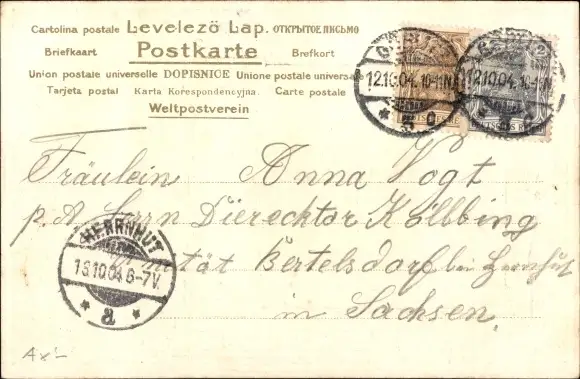 Cartolina postale Levelező Lap. ОТКРЫТОЕ ПИСЬМО
Briefkaart Postkarte Brefkort
Union postale universelle DOPISNICE Unione postale universa
Tarjeta postal Karta Korespondencyjna. Carte postale
Weltpostverein
12.10.04. 10-11N.
12.10.04.
* c
Fräulein Anna Vogt
p. A Herrn Dierechtor Kölbing
HERRNHUT
13.10.04. 6-7V.
* a *
Bertelsdorf bei Hernhut
in Sachsen